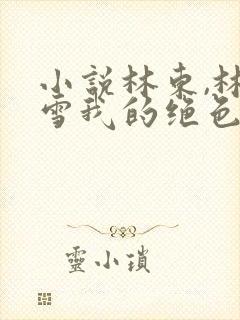 小説林東,林
雪我的绝色
靈小瑣